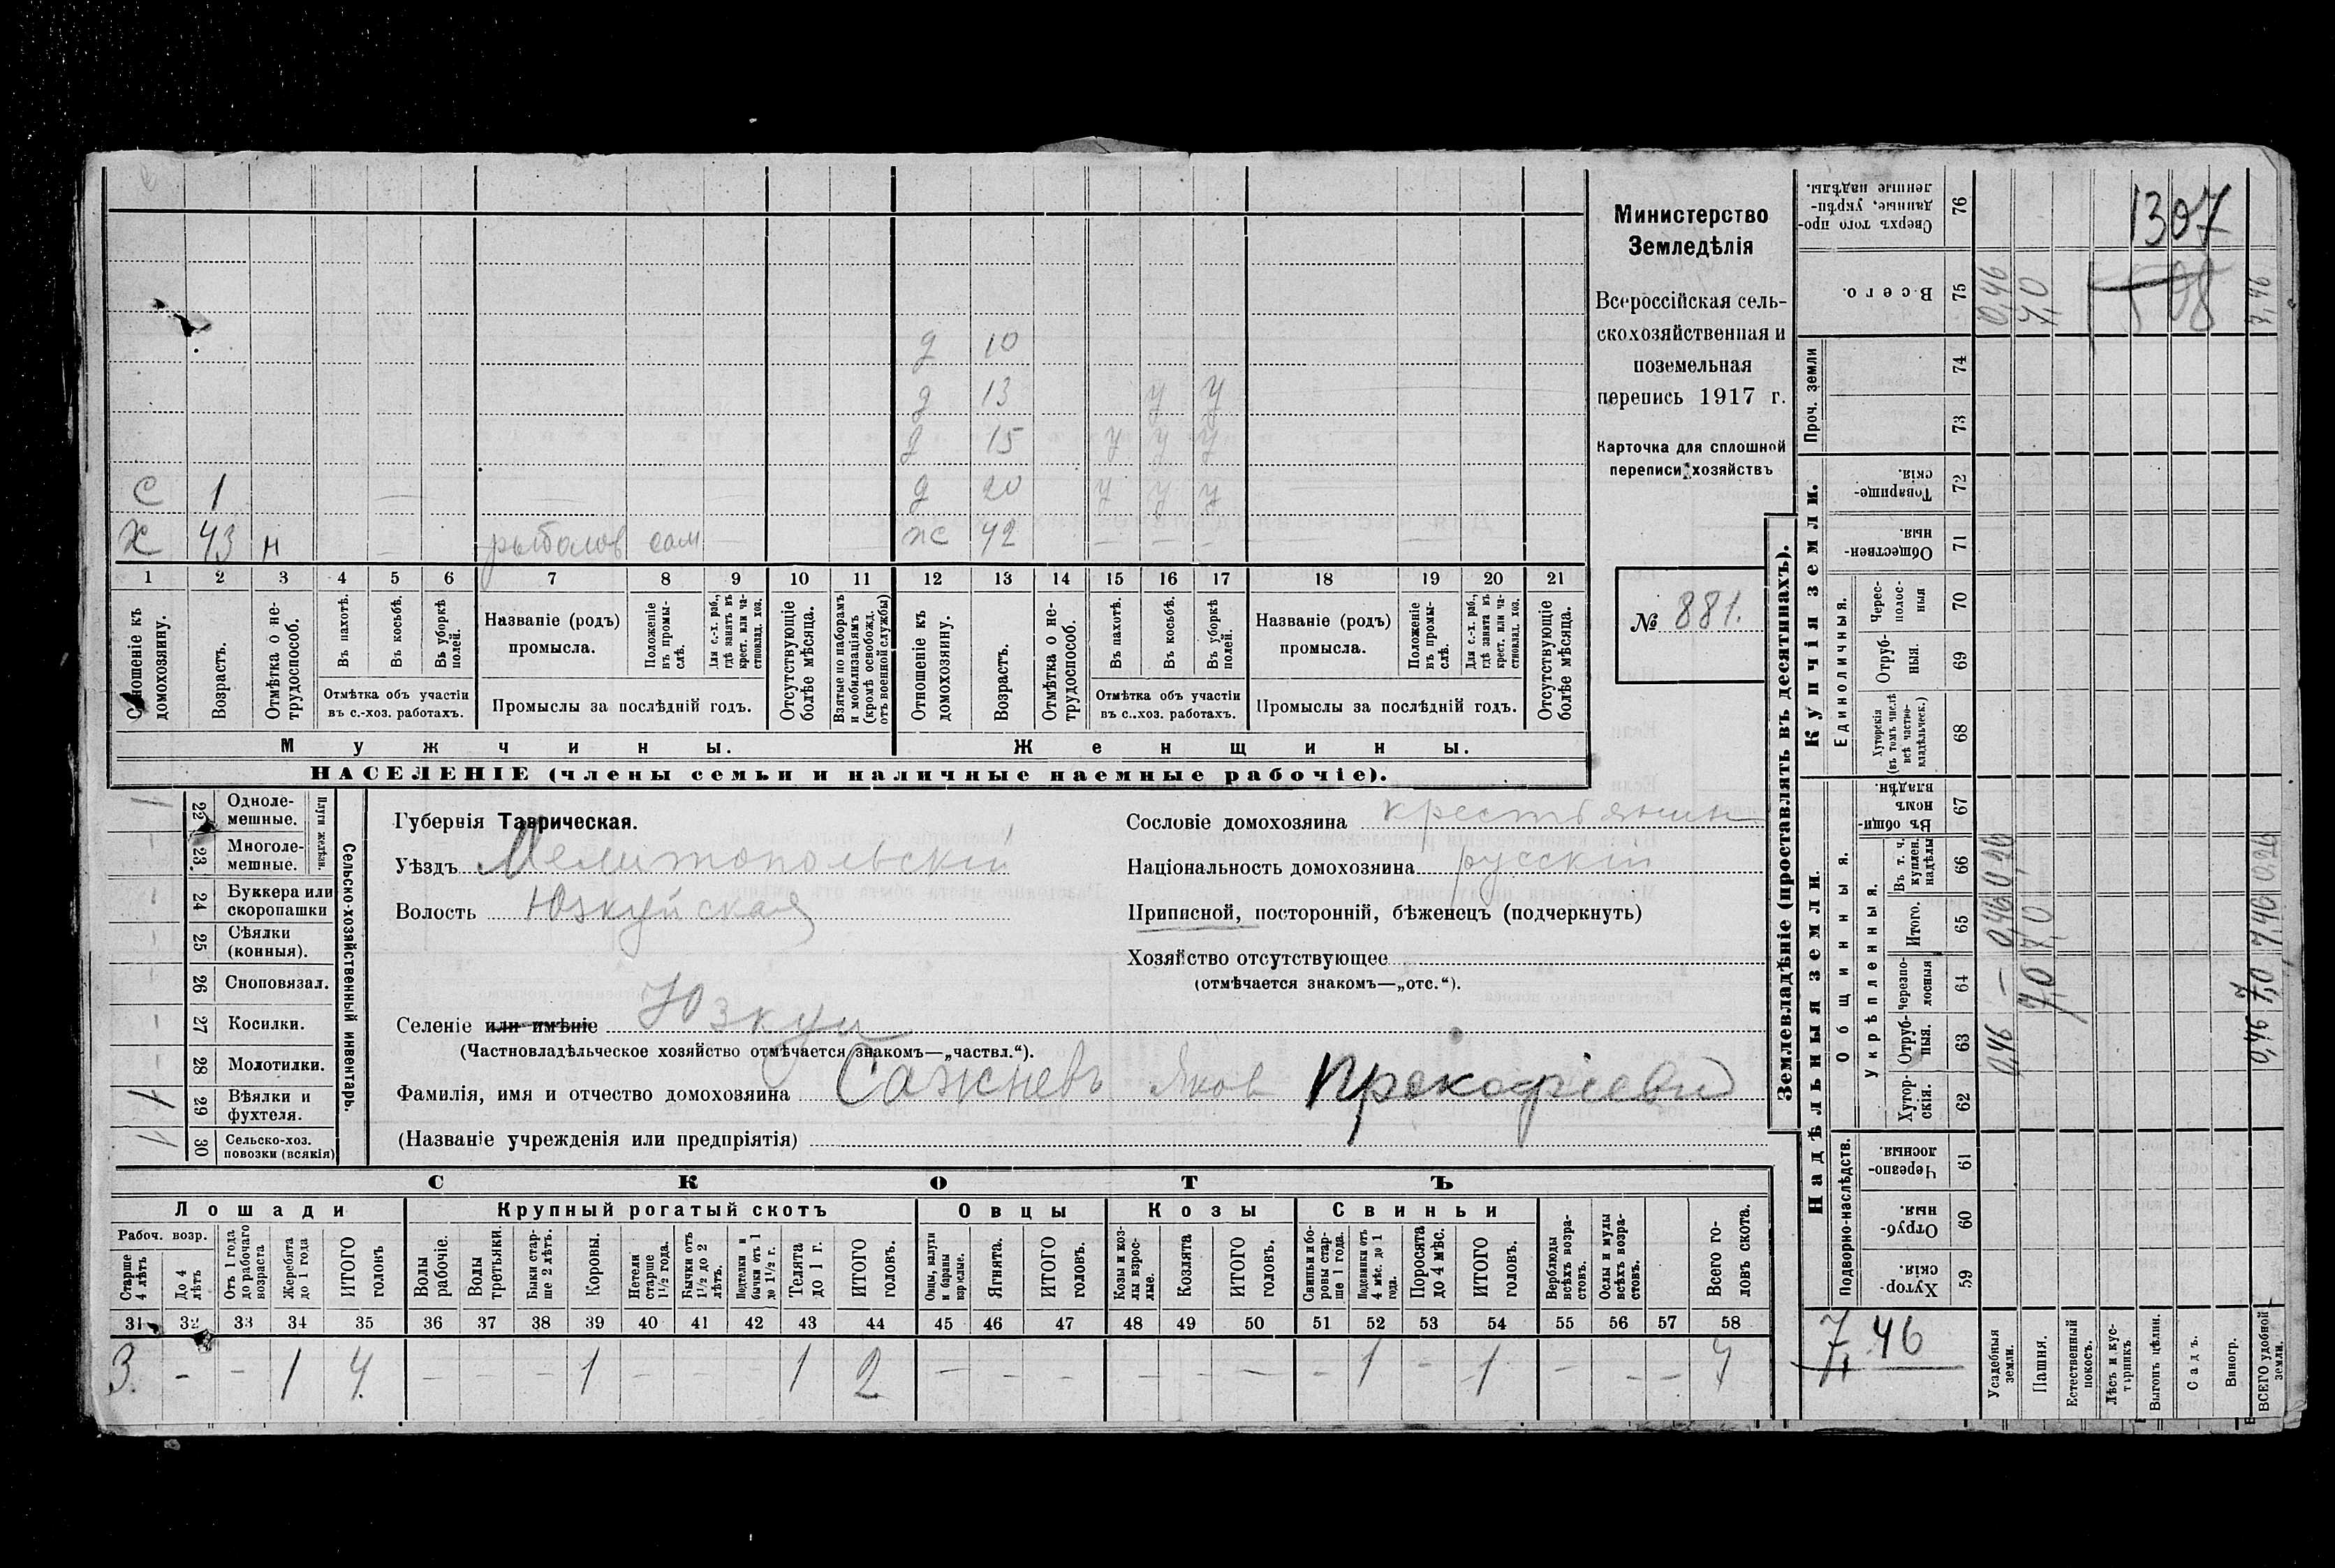 Министерство
Земледѣлія
Всероссійская сель-
скохозяйственная и
поземельная
перепись 1917 г.
Карточка для сплошной
переписи хозяйствъ
№ 881.
д 10
д 13 у у
д 15 у у у
С 1 д 20 у у у
Х 43 н рыболов сам ж 42
1 2 3 4 5 6 7 8 9 10 11 12 13 14 15 16 17 18 19 20 21
Отношеніе къ домохозяину.
Возрастъ.
Отмѣтка о не-трудоспособ.
Въ пахотѣ.
Въ косьбѣ.
Въ уборкѣ полей.
Отмѣтка объ участіи
въ с.-хоз. работахъ.
Названіе (родъ)
промысла.
Положеніе въ промы-слѣ.
Для с.-х. раб., гдѣ занятъ въ крест. или ча-стновлад. хоз.
Промыслы за послѣдній годъ.
Отсутствующіе болѣе мѣсяца.
Взятые по наборамъ и мобилизаціямъ (кромѣ освобожд. отъ военной службы)
Отношеніе къ домохозяину.
Возрастъ.
Отмѣтка о не-трудоспособ.
Въ пахотѣ.
Въ косьбѣ.
Въ уборкѣ полей.
Отмѣтка объ участіи
въ с..хоз. работахъ.
Названіе (родъ)
промысла.
Положеніе въ промы-слѣ.
Для с.-х. раб., гдѣ занята въ крест. или ча-стновлад. хоз.
Промыслы за послѣдній годъ.
Отсутствующіе болѣе мѣсяца.
Мужчины.
Женщины.
НАСЕЛЕНІЕ (члены семьи и наличные наемные рабочіе).
Сельско-хозяйственный инвентарь.
Плуги желѣзн.
1 22 Одноле-мешные.
- 23 Многоле-мешные.
- 24 Буккера или скоропашки
- 25 Сѣялки (конныя).
- 26 Сноповязал.
- 27 Косилки.
- 28 Молотилки.
1 29 Вѣялки и фухтеля.
1 30 Сельско-хоз. повозки (всякія)
Губернія Таврическая.
Уѣздъ Мелитопольскій
Волость Юзкуйская
Селеніе или имѣніе Юзкуи
(Частновладѣльческое хозяйство отмѣчается знакомъ—„частвл.“).
Фамилія, имя и отчество домохозяина Сажневъ Яков Прокофіевич
(Названіе учрежденія или предпріятія)
Сословіе домохозяина крестьянин
Національность домохозяина русскій
Приписной, посторонній, бѣженецъ (подчеркнуть)
Хозяйство отсутствующее
(отмѣчается знакомъ—„отс.“).
СКОТЪ
Лошади
Крупный рогатый скотъ
Овцы
Козы
Свиньи
Рабоч. возр.
Старше 4 лѣтъ
До 4 лѣтъ
Отъ 1 года до рабочаго возраста
Жеребята до 1 года
ИТОГО головъ
Волы рабочіе.
Волы третьяки.
Быки стар-ше 2 лѣтъ.
Коровы.
Нетели старше 1½ года.
Бычки отъ 1½ до 2 лѣтъ.
Подтелки и бычки отъ 1 до 1½ г.
Телята до 1 г.
ИТОГО головъ.
Овцы, валухи и бараны взрослые.
Ягнята.
ИТОГО головъ.
Козы и коз-лы взрос-лые.
Козлята
ИТОГО головъ.
Свиньи и бо-ровы стар-ше 1 года.
Подсвинки отъ 4 мѣс. до 1 года.
Поросята до 4 мѣс.
ИТОГО головъ.
Верблюды всѣхъ возра-стовъ.
Ослы и мулы всѣхъ возра-стовъ.
Всего го-ловъ скота.
31 32 33 34 35 36 37 38 39 40 41 42 43 44 45 46 47 48 49 50 51 52 53 54 55 56 57 58
3. - - 1 4. - - - 1 - - - 1 2 - - - - - - - 1 - 1 - - - 7
Землевладѣніе (проставлять въ десятинахъ).
Надѣльныя земли.
Купчія земли.
Подворно-наслѣдств.
Общинныя.
Укрѣпленныя.
Единоличныя.
Проч. земли
Хутор-скія. 59
Отруб-ныя. 60
Черезпо-лосныя 61
Хутор-скія. 62
Отруб-ныя. 63
Черезпо-лосныя 64
Итого. 65
Въ т. ч. куплен. надѣлы 66
Въ общин-номъ владѣн. 67
Хуторскія (въ томъ числѣ всѣ частно-владѣльческ.) 68
Отруб-ныя. 69
Черес-полос-ныя 70
Обществен-ныя 71
Товарище-скія. 72
73
74
Всего. 75
Сверхъ того про-данные, укрѣп-ленные надѣлы. 76
Усадебныя земли. 0,46 — 0,46 0,26 0,46
Пашня. 7,0 7,0 7,0
Естественный покосъ.
Лѣсъ и кус-тарникъ.
Выгонъ цѣлин.
Садъ.
Виногр.
ВСЕГО удобной земли. 0,46 7,0 7,46 0,26 7,46
7,46
1307